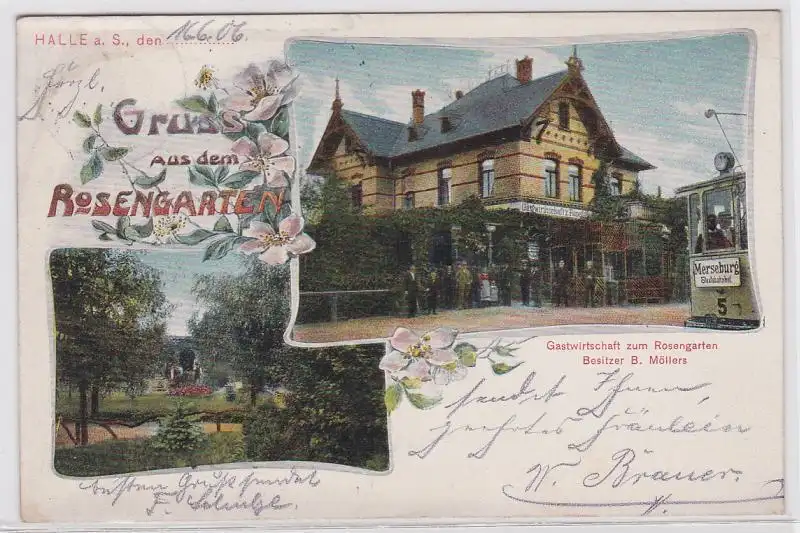 HALLE a. S., den 16.6.06
Herzl.
Gruss
aus dem
ROSENGARTEN
Gastwirtschaft z. Rosen
Merseburg
5
Gastwirtschaft zum Rosengarten
Besitzer B. Möllers
sendet Ihnen,
geehrtes Fräulein
W. Brauer.
besten Gruß sendet
F. Schulze